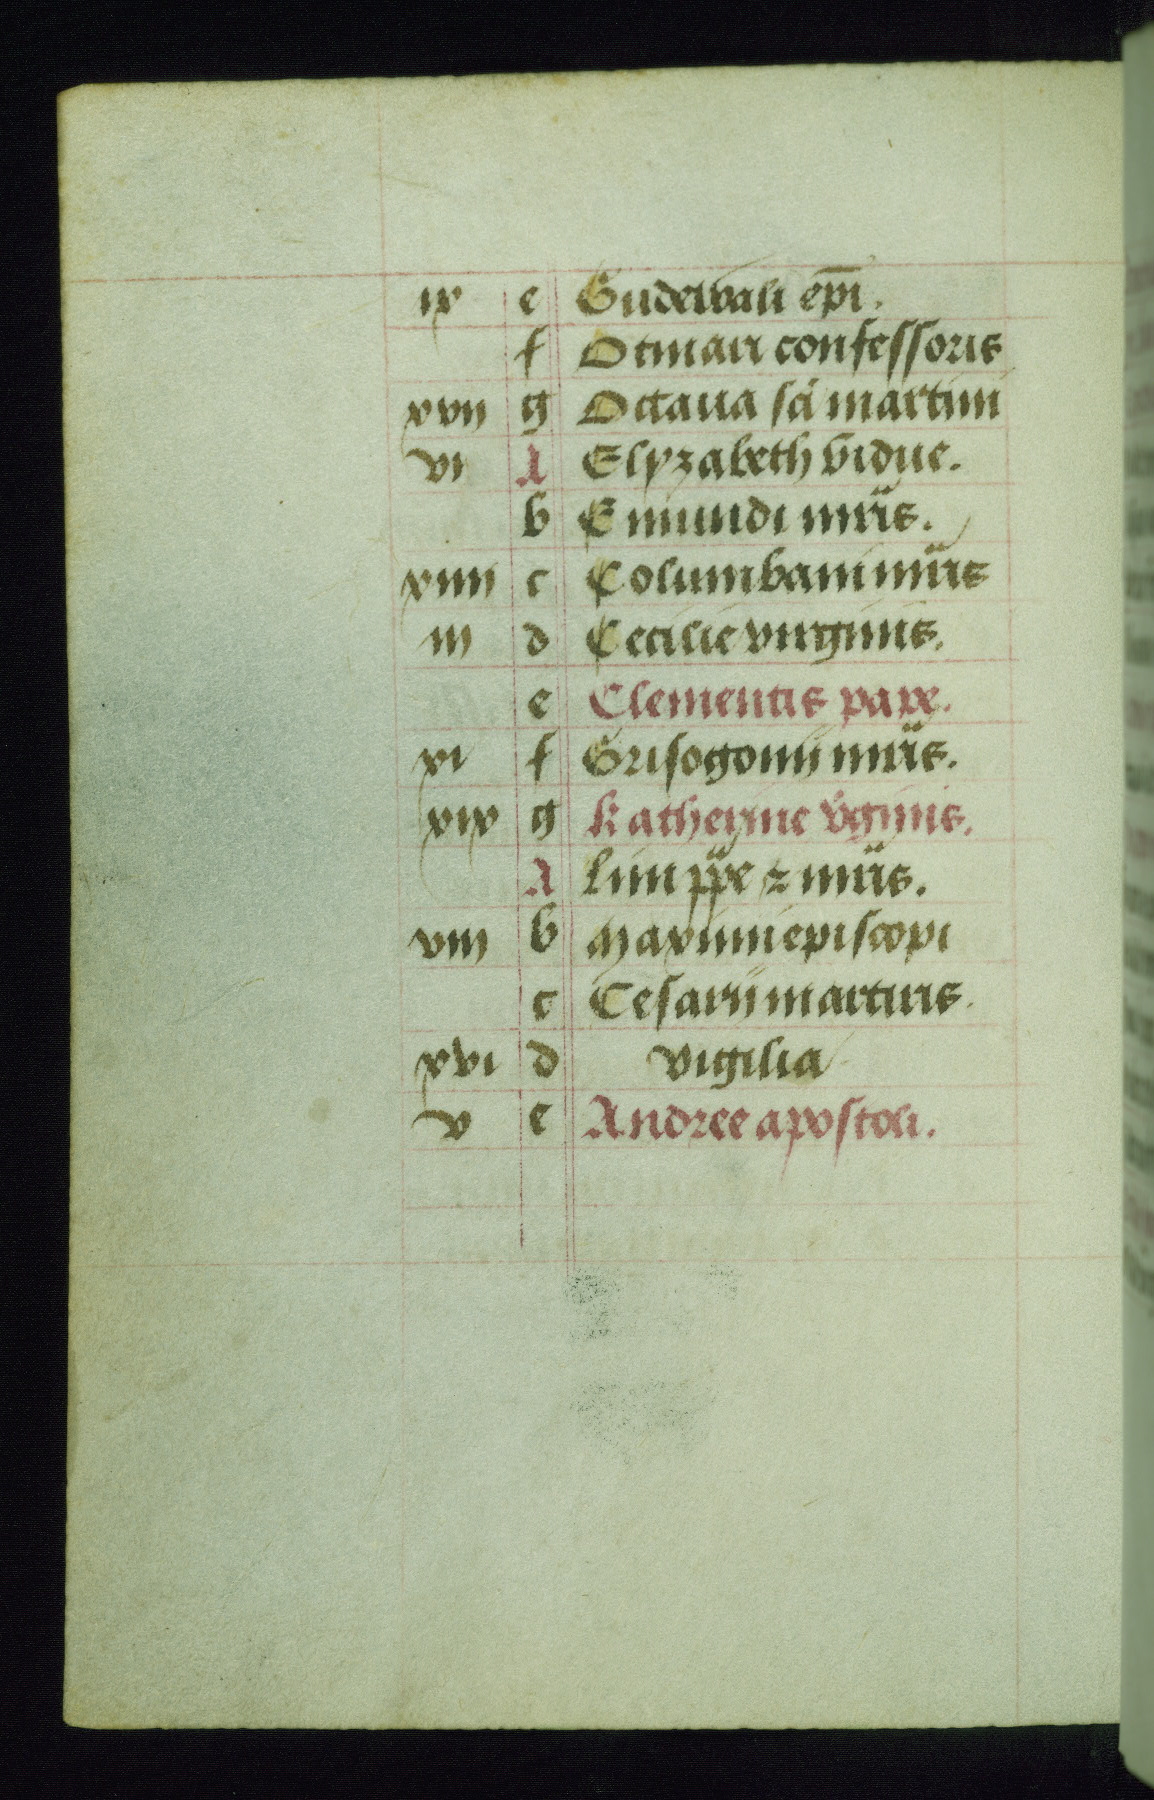 ix e Gudewali ep̄i.
f Otmari confessoris
xvii g Octaua sc̄i martini
vi A Elyzabeth vidue.
b Emundi mr̄is.
xiiii c Columbani mr̄is
iii d Cecilie virginis.
e Clementis pape.
xi f Grisogonij mr̄is.
xix g Katherine v̄ginis.
A Lini pp̄e ⁊ mr̄is.
viii b Maximi episcopi
c Cesarij martiris.
xvi d vigilia
v e Andree apostoli.